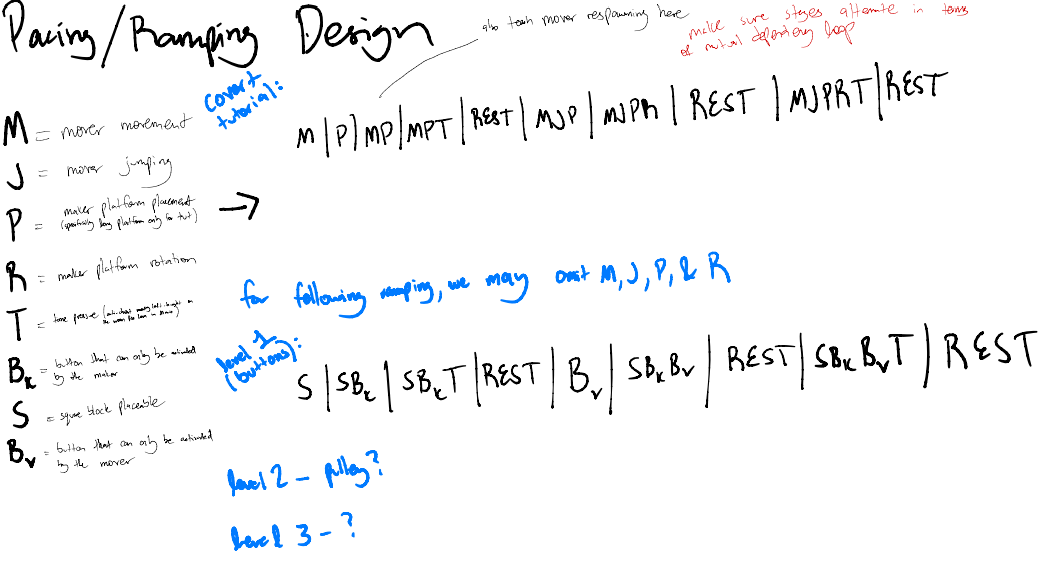 Pacing/Ramping Design
also teach mover respawning here
make sure stages alternate in terms
of mutual dependency loop
covert
tutorial:
M | P | MP | MPT | REST | MJP | MJPR | REST | MJPRT | REST
M = mover movement
J = mover jumping
P = maker platform placement
(specifically long platform only for tut)
R = maker platform rotation
T = time pressure
B_k = button that can only be activated
by the maker
S = square block placeable
B_v = button that can only be activated
by the mover
→
for following ramping, we may omit M, J, P, & R
level 1
(buttons):
S | SB_k | SB_kT | REST | B_v | SB_kB_v | REST | SB_kB_vT | REST
level 2 - pulley?
level 3 - ?